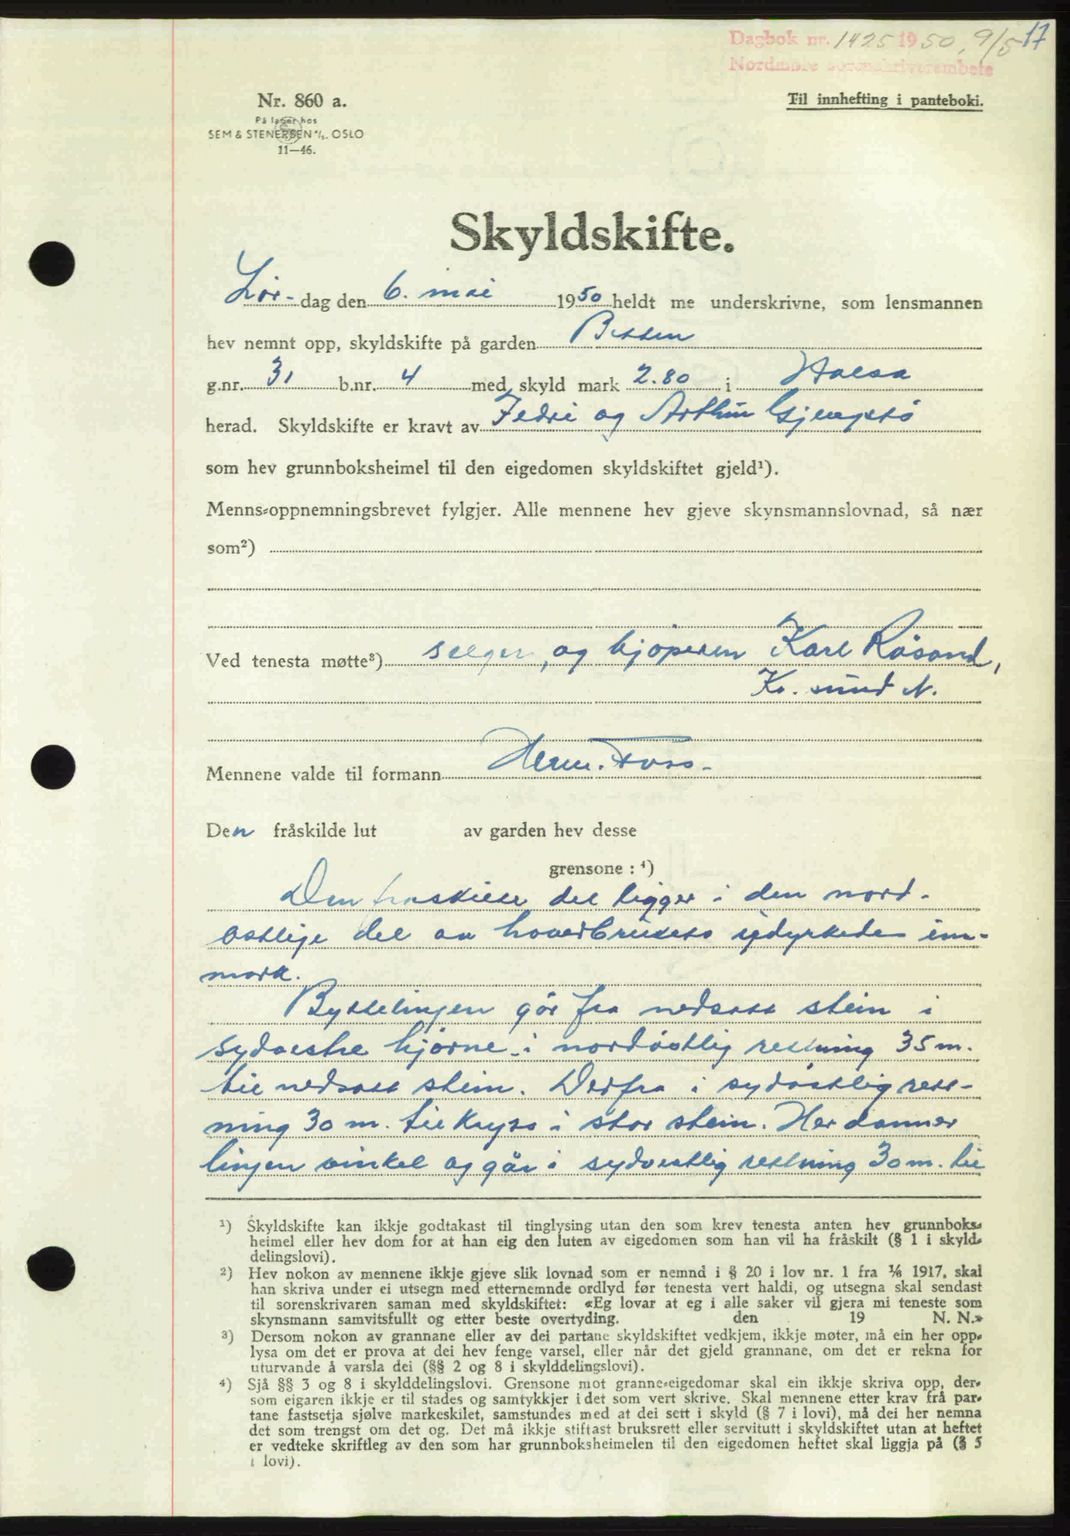 Dagbok nr. 1425 1950, 9/5 17
Nordmøre sorenskriverembete
Nr. 860 a.
På lager hos
SEM & STENERSEN A/S. OSLO
11—46.
Til innhefting i panteboki.
Skyldskifte.
Lør- dag den 6. mai 1950 heldt me underskrivne, som lensmannen
hev nemnt opp, skyldskifte på garden
g.nr. 31 b.nr. 4 med skyld mark 2.80 i Halsa
herad. Skyldskifte er kravt av Fedri og Arthur Gjengstø
som hev grunnboksheimel til den eigedomen skyldskiftet gjeld¹).
Menns-oppnemningsbrevet fylgjer. Alle mennene hev gjeve skynsmannslovnad, så nær
som²)
Ved tenesta møtte³) selgeren, og kjøperen Karl Røsand,
Kr. sund N.
Mennene valde til formann Herm. Foss.
Den fråskilde lut av garden hev desse
grensone : ⁴)
Den fraskilte del ligger i den nord-
østlige del av hovedbrukets updyrkede inn-
mark.
Byttelinjen går fra nedsatt stein i
sydvestre hjørne i nordøstlig retning 35 m.
til nedsatt stein. Derfra i sydøstlig rett-
ning 30 m. til kryss i stor stein. Her danner
linjen vinkel og går i sydvestlig rettning 30 m. til
¹) Skyldskifte kan ikkje godtakast til tinglysing utan den som krev tenesta anten hev grunnboks-
heimel eller hev dom for at han eig den luten av eigedomen som han vil ha fråskilt (§ 1 i skyld-
delingslovi).
²) Hev nokon av mennene ikkje gjeve slik lovnad som er nemnd i § 20 i lov nr. 1 fra ⅛ 1917, skal
han skriva under ei utsegn med etternemnde ordlyd før tenesta vert haldi, og utsegna skal sendast
til sorenskrivaren saman med skyldskiftet: «Eg lovar at eg i alle saker vil gjera mi teneste som
skynsmann samvitsfullt og etter beste overtyding. den 19 N. N.»
³) Dersom nokon av grannane eller av dei partane skyldskiftet vedkjem, ikkje møter, må ein her opp-
lysa om det er prova at dei hev fenge varsel, eller når det gjeld grannane, om det er rekna for
uturvande å varsla dei (§§ 2 og 8 i skylddelingslovi).
⁴) Sjå §§ 3 og 8 i skylddelingslovi. Grensone mot granne-eigedomar skal ein ikkje skriva opp, der-
som eigaren ikkje er til stades og samtykkjer i det som vert skrive. Skal mennene etter krav frå par-
tane fastsetja sjølve markeskilet, samstundes med at dei sett i skyld (§ 7 i lovi), må dei her nemna
det som trengst om det og. Det må ikkje stiftast bruksrett eller servitutt i skyldskiftet utan at heftet
er vedteke skriftleg av den som har grunnboksheimelen til den eigedomen heftet skal liggja på (§ 5
i lovi).